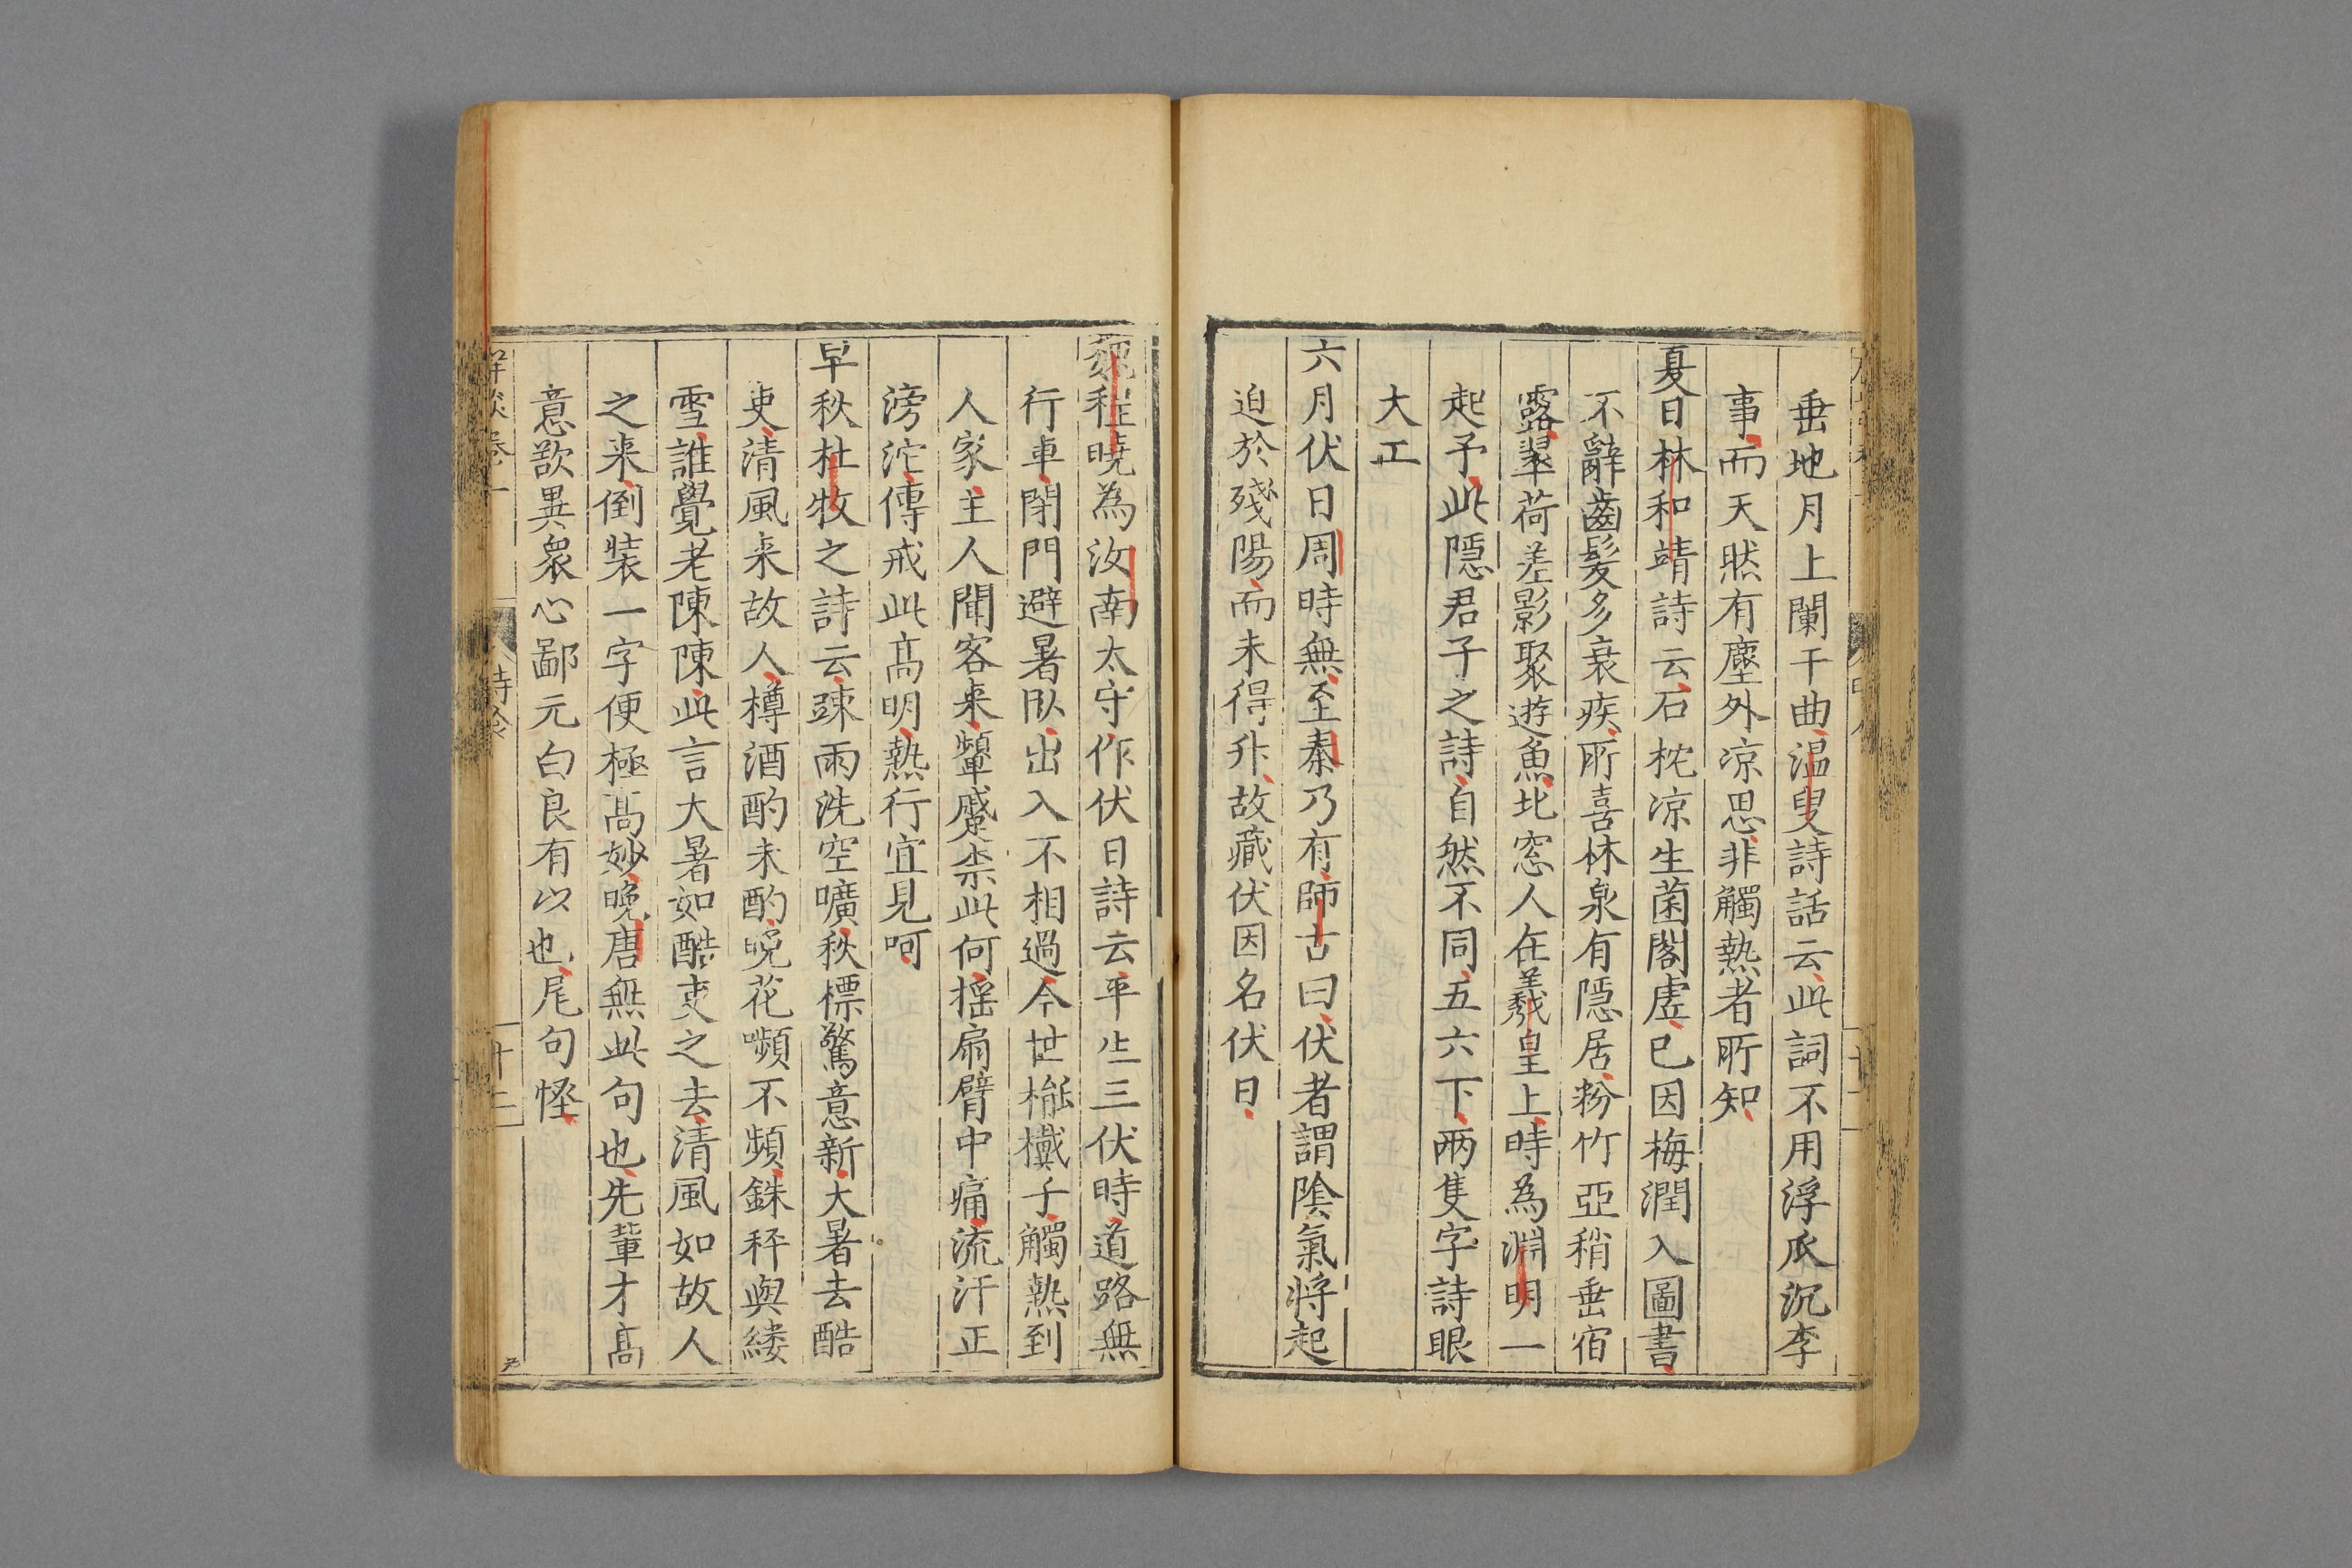 垂地月上闌干曲温叟詩話云此詞不用浮瓜沉李
事而天然有塵外凉思非觸熱者所知
夏日林和靖詩云石枕凉生菌閣虛已因梅潤入圖書
不辭齒髮多衰疾所喜林泉有隱居粉竹亞稍垂宿
露翠荷差影聚遊魚北窓人在羲皇上時為淵明一
起予此隱君子之詩自然不同五六下兩隻字詩眼
大工
六月伏日周時無至秦乃有師古曰伏者謂陰氣將起
迫於殘陽而未得升故藏伏因名伏日
魏程曉為汝南太守作伏日詩云平生三伏時道路無
行車閉門避暑卧出入不相過今世褦襶子觸熱到
人家主人聞客来顰蹙柰此何揺扇臂中痛流汗正
滂沱傳戒此髙明熱行宜見呵
早秋杜牧之詩云疎雨洗空曠秋標驚意新大暑去酷
吏清風来故人樽酒酌未酌晩花嚬不頻銖秤與縷
雪誰覺老陳陳此言大暑如酷吏之去清風如故人
之来倒装一字便極髙妙晩唐無此句也先輩才髙
意欲異衆心鄙元白良有以也尾句恠